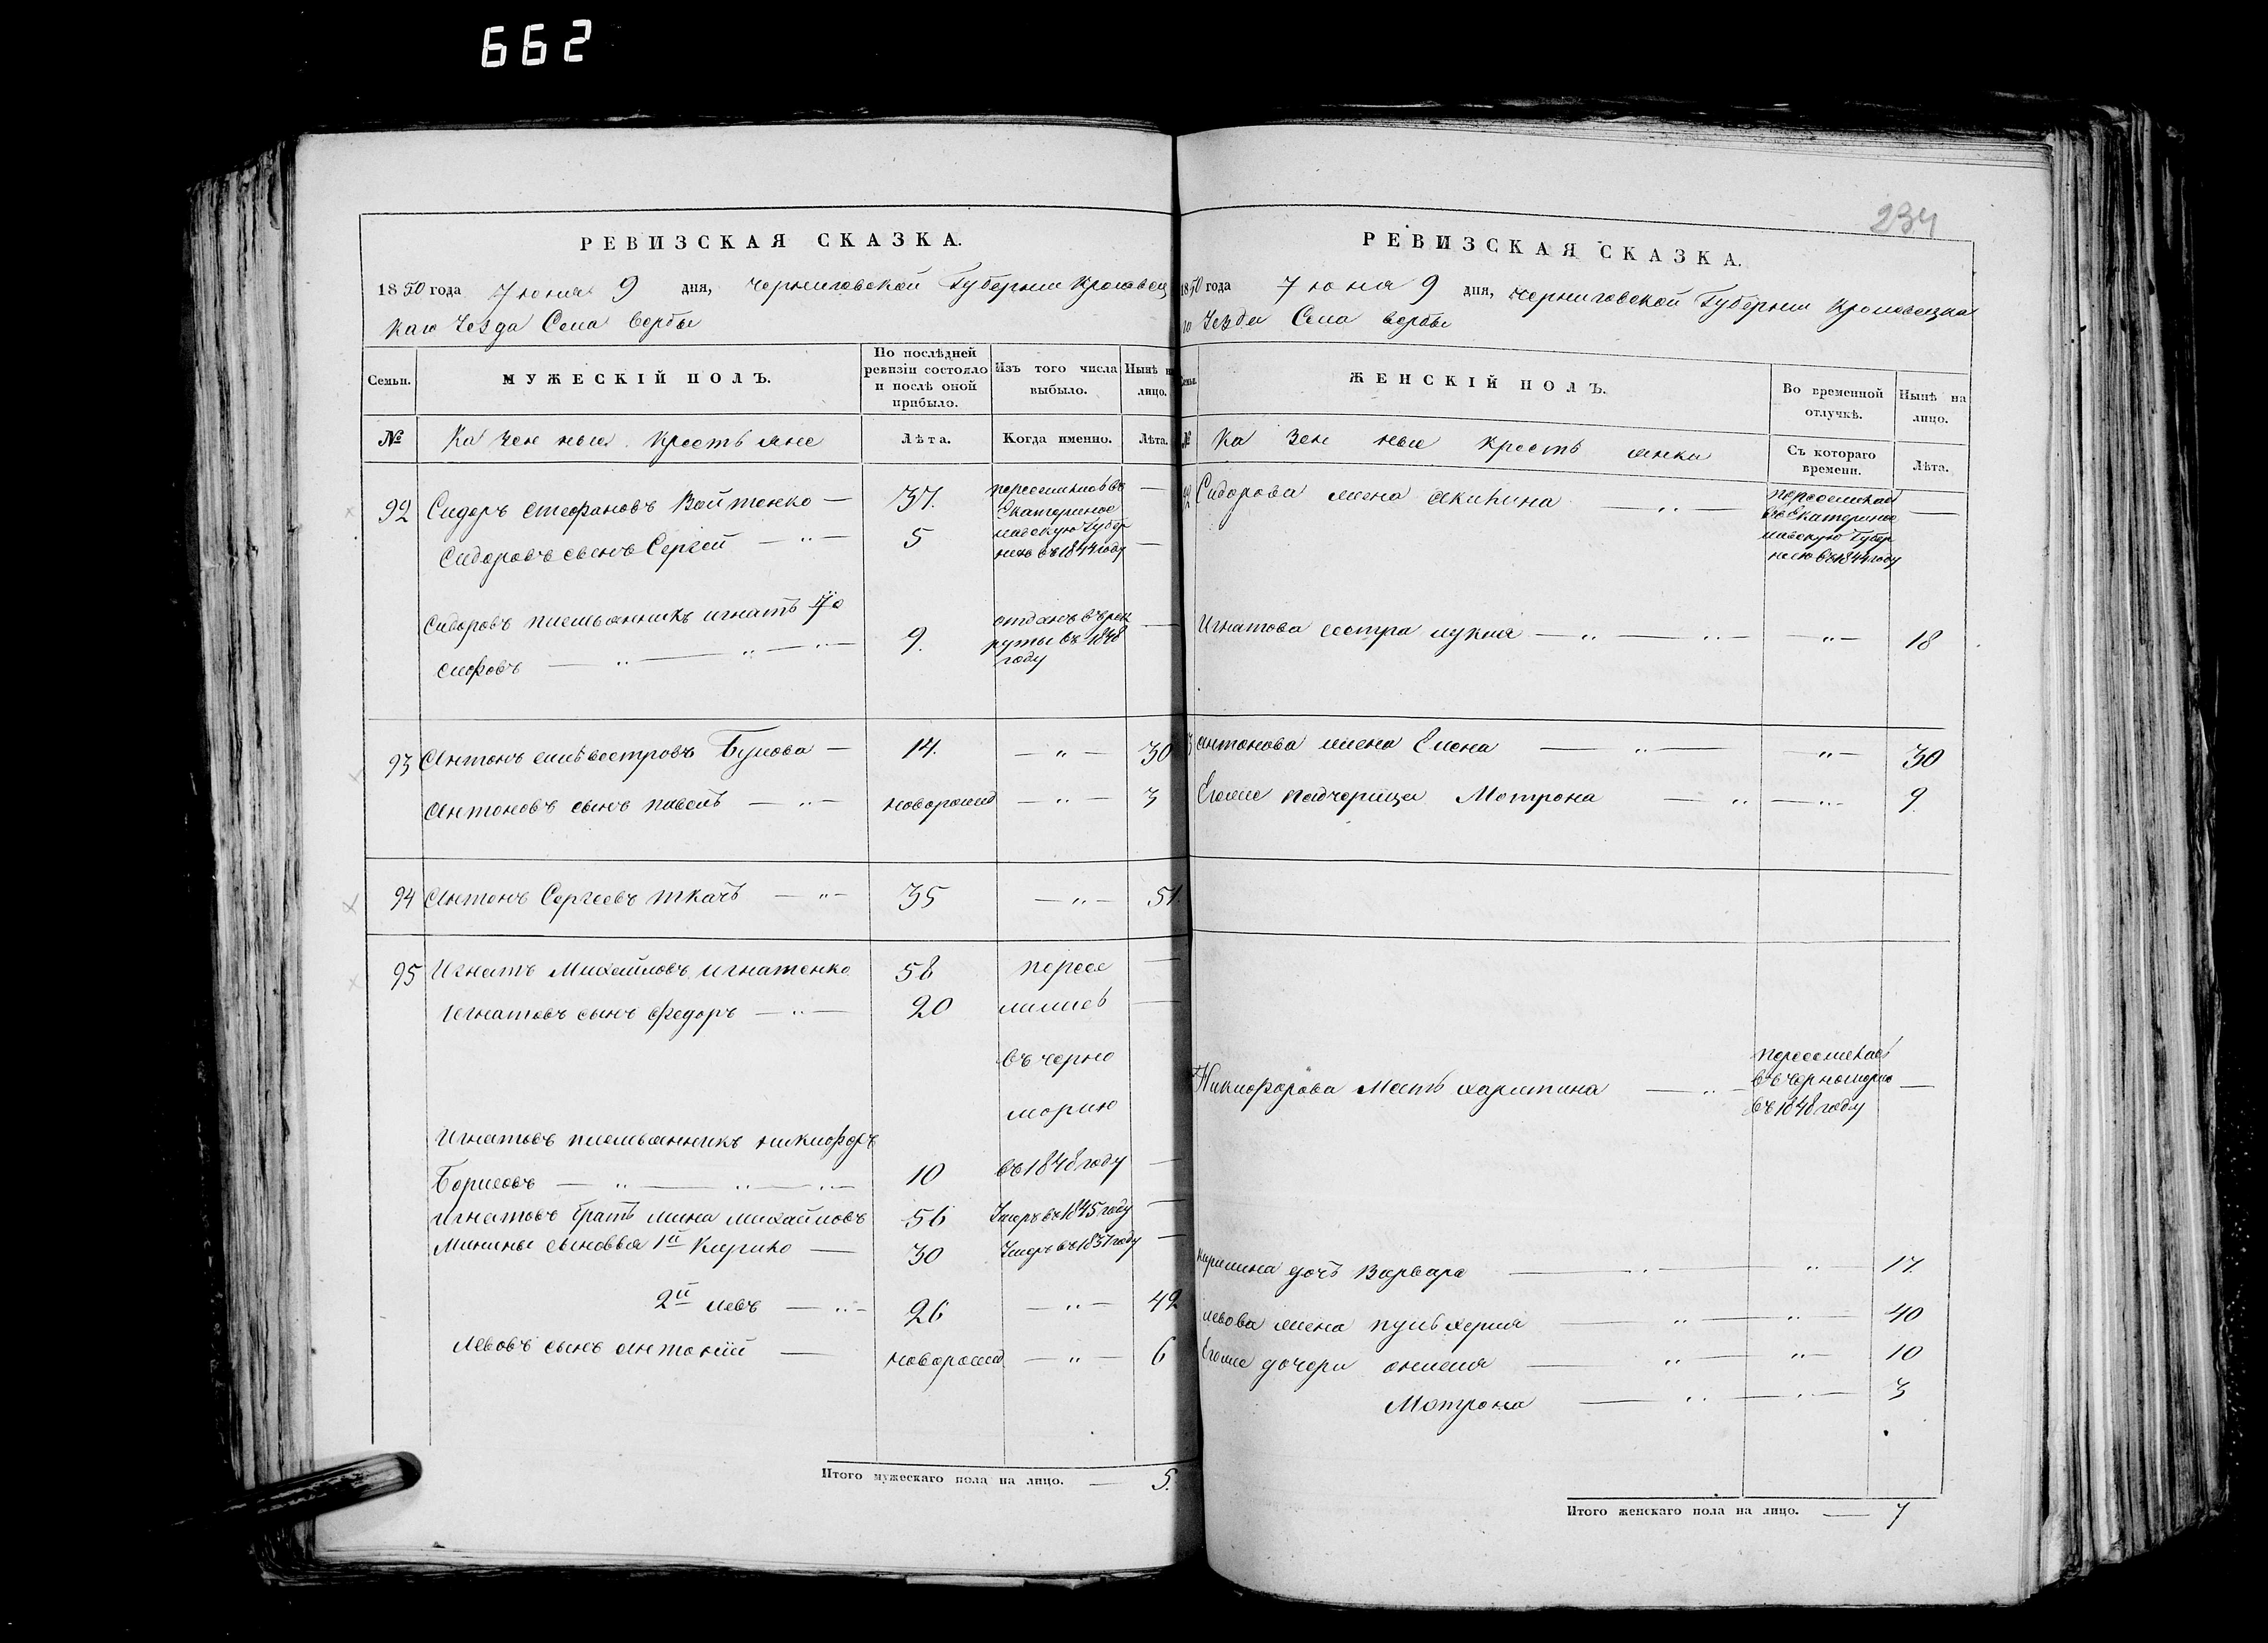 662
234
РЕВИЗСКАЯ СКАЗКА.
1850 года Июня 9 дня, Черниговской Губернии Кролевец
каго Уезда Села Вербы
Семьи.
МУЖЕСКІЙ ПОЛЪ.
По послѣдней ревизіи состояло и послѣ оной прибыло.
Изъ того числа выбыло.
Нынѣ на лицо.
№ Казенные Крестьяне Лѣта. Когда именно. Лѣта.
92 Сидоръ Стефановъ Войтенко — 37. переселился въ —
Екатеринос
Сидоровъ сынъ Сергей — " — 5 лавскую Губер
нию въ 1844 году —
Сидоровъ племьянникъ игнатъ Ио
сифовъ — " — " — " — 9. отданъ въ рек —
руты въ 1848
году
93 Антонъ сильвестровъ Булова — 14. — " — 30
Антоновъ сынъ павелъ — " — новорожд — " — 3
94 Антонъ Сергеевъ ткачъ — " — 35 — " — 51.
95 Игнатъ Михайловъ игнатенко 58 пересе —
Игнатовъ сынъ федоръ — " — 20 лились —
въ черно
морию
Игнатовъ племьянникъ никифоръ
Борисовъ — " — " — " — 10 въ 1848 году —
игнатовъ братъ мина михайловъ 56 Умеръ въ 1845 году —
Минины сыновья 1й Кирило — 30 Умеръ въ 1837 году —
2й левъ — " — 26 — " — 42
Львовъ сынъ антоній — новорожд — " — 6
Итого мужескаго пола на лицо. — 5.
РЕВИЗСКАЯ СКАЗКА.
1850 года Июня 9 дня, Черниговской Губернии Кролевецка
го Уезда Села вербы
Семьи.
ЖЕНСКІЙ ПОЛЪ.
Во временной отлучкѣ.
Нынѣ на лицо.
№ Казенные крестьянки Съ котораго времени. Лѣта.
92 Сидорова жена Акилина — " — переселилась —
въ Екатеринос
лавскую Губер
нию въ 1844 году
Игнатова сестра лукия — " — " — " — 18
93 антонова жена Елена — " — " — 30
Егоже падчерица Мотрона — " — " — 9.
Никифорова Мать харитина — " — переселилась
въ черноморию —
въ 1848 году
кирилина дочь Варвара — " — " 17.
львова жена пульхерия — " — " — 40
Егоже дочери — " " — 10
Мотрона — " — " — 3
Итого женскаго пола на лицо. — 7